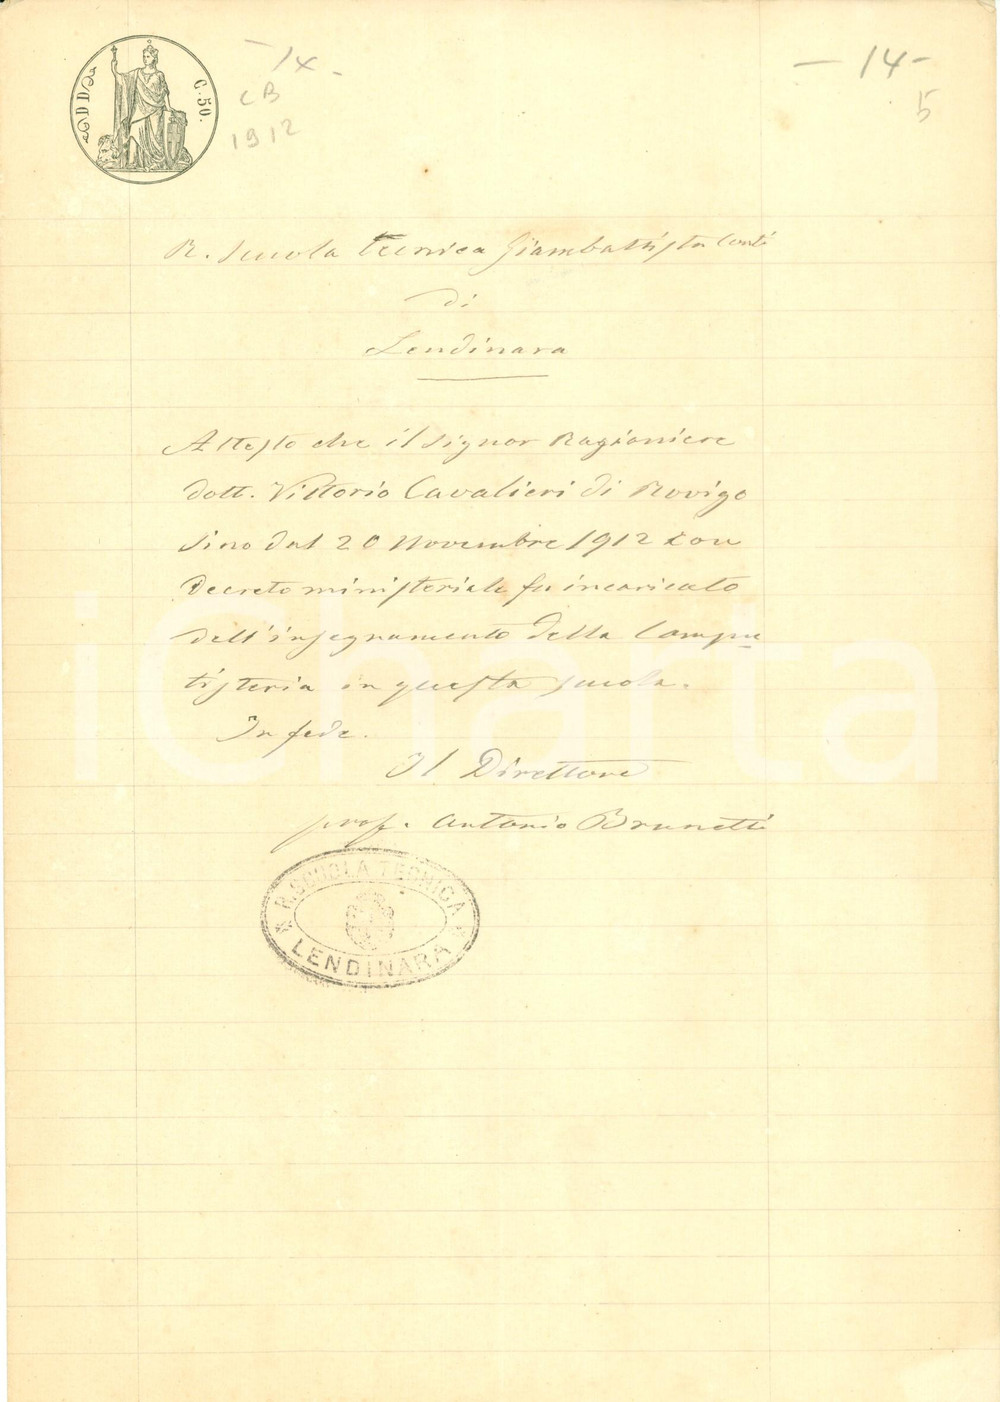 C. 50.
- 14 -
CB
1912
- 14 -
5
R. Scuola tecnica Giambattista Conti
di
Lendinara
Attesto che il signor Ragioniere
dott. Vittorio Cavalieri di Rovigo
sino dal 20 Novembre 1912 con
decreto ministeriale fu incaricato
dell'insegnamento della Compu
tisteria in questa scuola.
In fede.
Il Direttore
prof. Antonio Brunetti
R. SCUOLA TECNICA
LENDINARA
iCharta